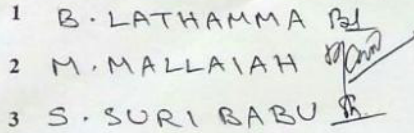 1 B. LATHAMMA
2 M. MALLAIAH
3 S. SURI BABU